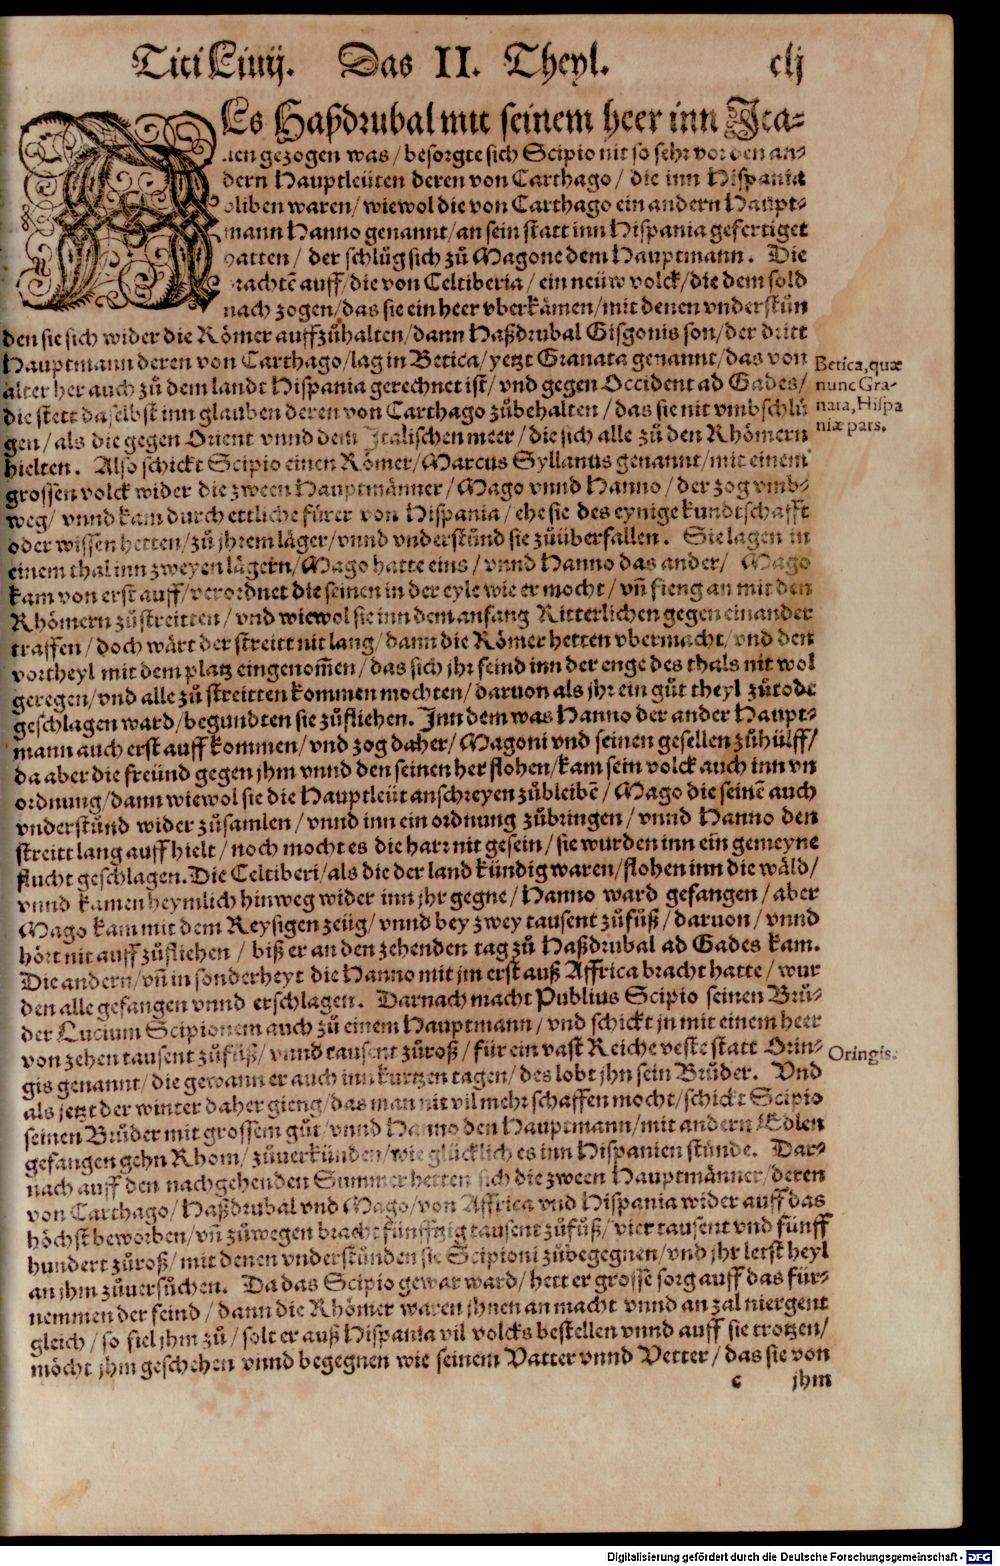 Titi Liuij. Das II. Theyl. clj
ES Haßdrubal mit seinem heer inn Ita-
lien gezogen was / besorgte sich Scipio nit so sehr vor den an-
dern Hauptleüten deren von Carthago / die inn Hispania
bliben waren / wiewol die von Carthago ein andern Haupt-
mann Hanno genannt / an sein statt inn Hispania gefertiget
hatten / der schlůg sich zů Magone dem Hauptmann. Die
brachtẽ auff / die von Celtiberia / ein neüw volck / die dem sold
nach zogen / das sie ein heer vberkämen / mit denen vnderstůn
den sie sich wider die Römer auffzůhalten / dann Haßdrubal Gisgonis son / der dritt
Hauptmann deren von Carthago / lag in Betica / yetzt Granata genannt / das von
alter her auch zů dem landt Hispania gerechnet ist / vnd gegen Occident ad Gades /
die stett daselbst inn glauben deren von Carthago zůbehalten / das sie nit vmbschlů
gen / als die gegen Orient vnnd dem Italischen meer / die sich alle zů den Rhömern
hielten. Also schickt Scipio einen Römer / Marcus Syllanus genannt / mit einem
grossen volck wider die zween Hauptmänner / Mago vnnd Hanno / der zog vmb-
weg / vnnd kam durch ettliche fürer von Hispania / ehe sie des eynige kundtschafft
oder wissen hetten / zů jhrem läger / vnnd vnderstůnd sie zůüberfallen. Sie lagen in
einem thal inn zweyen lägern / Mago hatte eins / vnnd Hanno das ander / Mago
kam von erst auff / verordnet die seinen in der eyle wie er mocht / vñ fieng an mit den
Rhömern zůstreitten / vnd wiewol sie inn dem anfang Ritterlichen gegen einander
traffen / doch wärt der streitt nit lang / dann die Römer hetten vbermacht / vnd den
vortheyl mit dem platz eingenom̃en / das sich jhr feind inn der enge des thals nit wol
geregen / vnd alle zů streitten kommen mochten / daruon als jhr ein gůt theyl zůtode
geschlagen ward / begundten sie zůfliehen. Inn dem was Hanno der ander Haupt-
mann auch erst auff kommen / vnd zog daher / Magoni vnd seinen gesellen zůhülff /
da aber die freünd gegen jhm vnnd den seinen her flohen / kam sein volck auch inn vn
ordnung / dann wiewol sie die Hauptleüt anschreyen zůbleibẽ / Mago die seinẽ auch
vnderstůnd wider zůsamlen / vnnd inn ein ordnung zůbringen / vnnd Hanno den
streitt lang auff hielt / noch mocht es die harr nit gesein / sie wurden inn ein gemeyne
flucht geschlagen. Die Celtiberi / als die der land kündig waren / flohen inn die wäld /
vnnd kamen heymlich hinweg wider inn jhr gegne / Hanno ward gefangen / aber
Mago kam mit dem Reysigen zeüg / vnnd bey zwey tausent zůfůß / daruon / vnnd
hört nit auff zůfliehen / biß er an den zehenden tag zů Haßdrubal ad Gades kam.
Die andern / vñ in sonderheyt die Hanno mit jm erst auß Affrica bracht hatte / wur
den alle gefangen vnnd erschlagen. Darnach macht Publius Scipio seinen Brů-
der Lucium Scipionem auch zů einem Hauptmann / vnd schickt jn mit einem heer
von zehen tausent zůfůß / vnnd tausent zůroß / für ein vast Reiche veste statt Orin-
gis genannt / die gewann er auch inn kurtzen tagen / des lobt jhn sein Brůder. Vnd
als jetzt der winter daher gieng / das man nit vil mehr schaffen mocht / schickt Scipio
seinen Brůder mit grossem gůt / vnnd Hanno den Hauptmann / mit andern Edlen
gefangen gehn Rhom / zůuerkünden / wie glücklich es inn Hispanien stünde. Dar-
nach auff den nachgehenden Summer hetten sich die zween Hauptmänner / deren
von Carthago / Haßdrubal vnd Mago / von Affrica vnd Hispania wider auff das
höchst beworben / vñ zůwegen bracht fünfftzig tausent zůfůß / vier tausent vnd fünff
hundert zůroß / mit denen vnderstůnden sie Scipioni zůbegegnen / vnd jhr letst heyl
an jhm zůuersůchen. Da das Scipio gewar ward / hett er grosse sorg auff das für-
nemmen der feind / dann die Rhömer waren jhnen an macht vnnd an zal niergent
gleich / so fiel jhm zů / solt er auß Hispania vil volcks bestellen vnnd auff sie trotzen /
möcht jhm geschehen vnnd begegnen wie seinem Vatter vnnd Vetter / das sie von
c jhm
Betica, quæ
nunc Gra-
nata, Hispa
niæ pars.
Oringis.
Digitalisierung gefördert durch die Deutsche Forschungsgemeinschaft - DFG